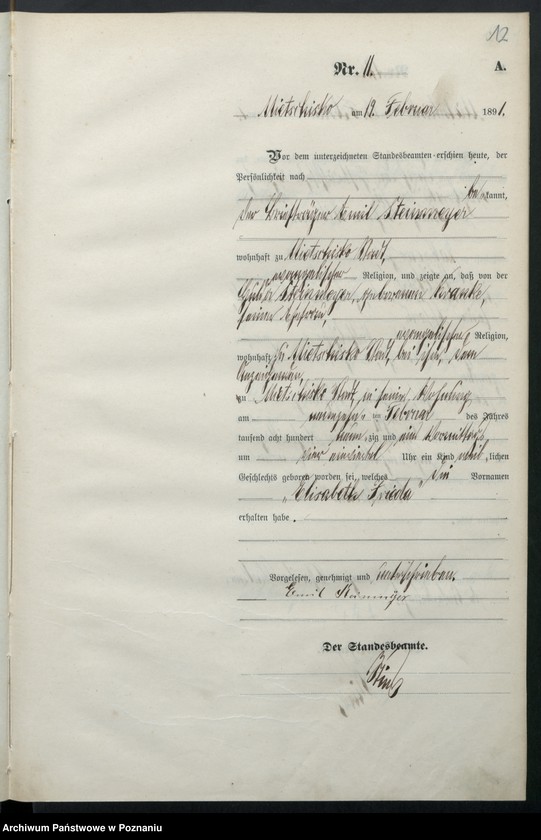 12
Nr. 11.
A.
Mietschisko am 19. Februar 1891.
Vor dem unterzeichneten Standesbeamten erschien heute, der
Persönlichkeit nach
bekannt,
der Briefträger Emil Steinmeyer
wohnhaft zu Mietschisko Stadt,
evangelischer Religion, und zeigte an, daß von der
Steinmeyer, geborenen Kranke,
seiner Ehefrau,
evangelischer Religion,
wohnhaft zu Mietschisko Stadt, bei ihm, dem
Anzeigenden,
zu Mietschisko Stadt, in seiner Wohnung
am neunzehnten Februar des Jahres
tausend acht hundert neunzig und ein Vormittags
um vier einviertel Uhr ein Kind weiblichen
Geschlechts geboren worden sei, welches die Vornamen
„Elisabeth Frieda“
erhalten habe.
Vorgelesen, genehmigt und unterschrieben.
Emil Steinmeyer
Der Standesbeamte.
Archiwum Państwowe w Poznaniu